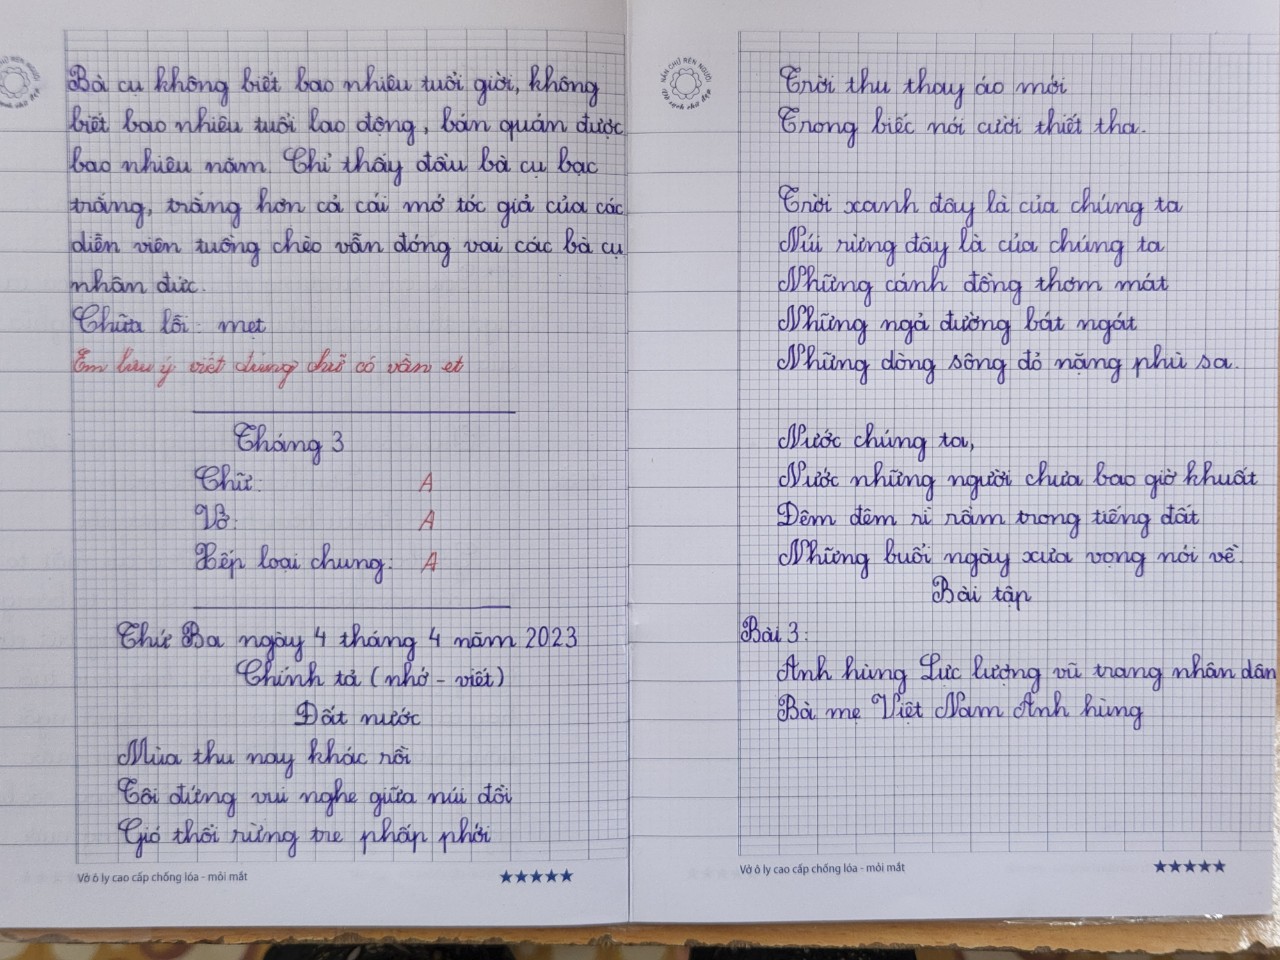 Bà cụ không biết bao nhiêu tuổi giời, không
biết bao nhiêu tuổi lao động, bán quán được
bao nhiêu năm. Chỉ thấy đầu bà cụ bạc
trắng, trắng hơn cả cái mớ tóc giả của các
diễn viên tuồng chèo vẫn đóng vai các bà cụ
nhân đức.
Chữa lỗi: mẹt
Em lưu ý viết đúng chữ có vần et
Tháng 3
Chữ: A
Vở: A
Xếp loại chung: A
Thứ Ba ngày 4 tháng 4 năm 2023
Chính tả (nhớ - viết)
Đất nước
Mùa thu nay khác rồi
Tôi đứng vui nghe giữa núi đồi
Gió thổi rừng tre phấp phới
Vở ô ly cao cấp chống lóa - mỏi mắt
NẮN CHỮ RÈN NGƯỜI
Vở sạch chữ đẹp
Trời thu thay áo mới
Trong biếc nói cười thiết tha.
Trời xanh đây là của chúng ta
Núi rừng đây là của chúng ta
Những cánh đồng thơm mát
Những ngả đường bát ngát
Những dòng sông đỏ nặng phù sa.
Nước chúng ta,
Nước những người chưa bao giờ khuất
Đêm đêm rì rầm trong tiếng đất
Những buổi ngày xưa vọng nói về.
Bài tập
Bài 3:
Anh hùng Lực lượng vũ trang nhân dân
Bà mẹ Việt Nam Anh hùng
Vở ô ly cao cấp chống lóa - mỏi mắt